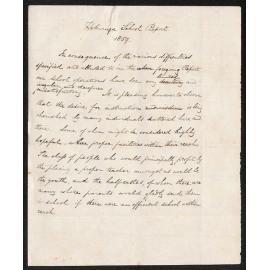 School Report
1857.
In consequence of the various difficulties
specified and alluded to in the above foregoing Report
our school operations have been very
unsatisfactory. It is pleasing however to observe
that the desire for instruction and wisdom is being
cherished by many individuals scattered here and
there. Some of whom might be considered highly
hopeful, were proper facilities within their reach.
The class of people who would principally profit by
the placing a proper teacher amongst us would be
the youth, and the half castes, of whom there are
many whose parents would gladly send them
to school if there were an efficient school within
reach.